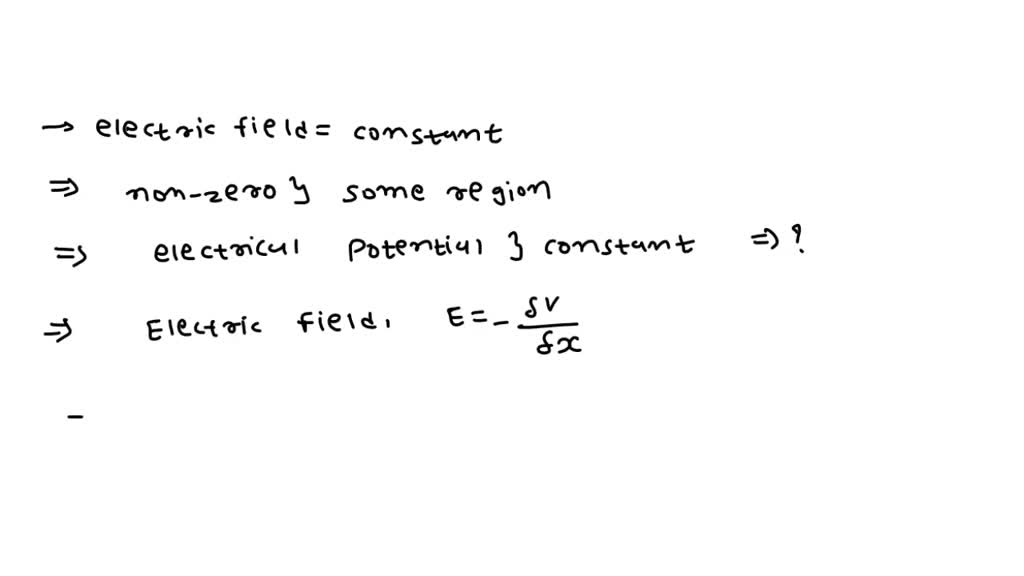 → electric field = constant
⇒ non-zero } some region
⇒ electrical potential } constant ⇒ ?
⇒ Electric field, E = - δV/δx
-